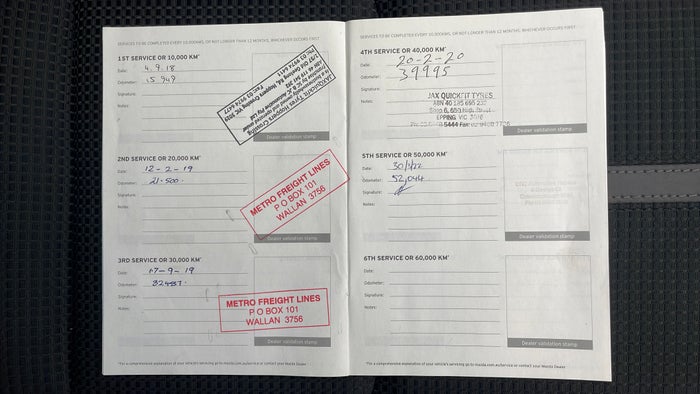 SERVICES TO BE COMPLETED EVERY 10,000KMS, OR NOT LONGER THAN 12 MONTHS, WHICHEVER OCCURS FIRST
1ST SERVICE OR 10,000 KM*
Date: 4.9.18
Odometer: 15 949
Signature:
Notes:
JAX Quickfit Tyres Hoppers Crossing
Hoppers Crossing, VIC 3029
Dealer validation stamp
2ND SERVICE OR 20,000 KM*
Date: 12-2-19
Odometer: 21-500
Signature:
Notes:
METRO FREIGHT LINES
P O BOX 101
WALLAN 3756
Dealer validation stamp
3RD SERVICE OR 30,000 KM*
Date: 17-9-19
Odometer:
Signature:
Notes:
METRO FREIGHT LINES
P O BOX 101
WALLAN 3756
Dealer validation stamp
*For a comprehensive explanation of your vehicle's servicing go to mazda.com.au/service or contact your Mazda Dealer
SERVICES TO BE COMPLETED EVERY 10,000KMS, OR NOT LONGER THAN 12 MONTHS, WHICHEVER OCCURS FIRST
4TH SERVICE OR 40,000 KM*
Date: 20-2-20
Odometer: 39995
Signature:
Notes:
JAX QUICKFIT TYRES
EPPING VIC 3076
Dealer validation stamp
5TH SERVICE OR 50,000 KM*
Date:
Odometer: 52,044
Signature:
Notes:
Dealer validation stamp
6TH SERVICE OR 60,000 KM*
Date:
Odometer:
Signature:
Notes:
Dealer validation stamp
*For a comprehensive explanation of your vehicle's servicing go to mazda.com.au/service or contact your Mazda Dealer